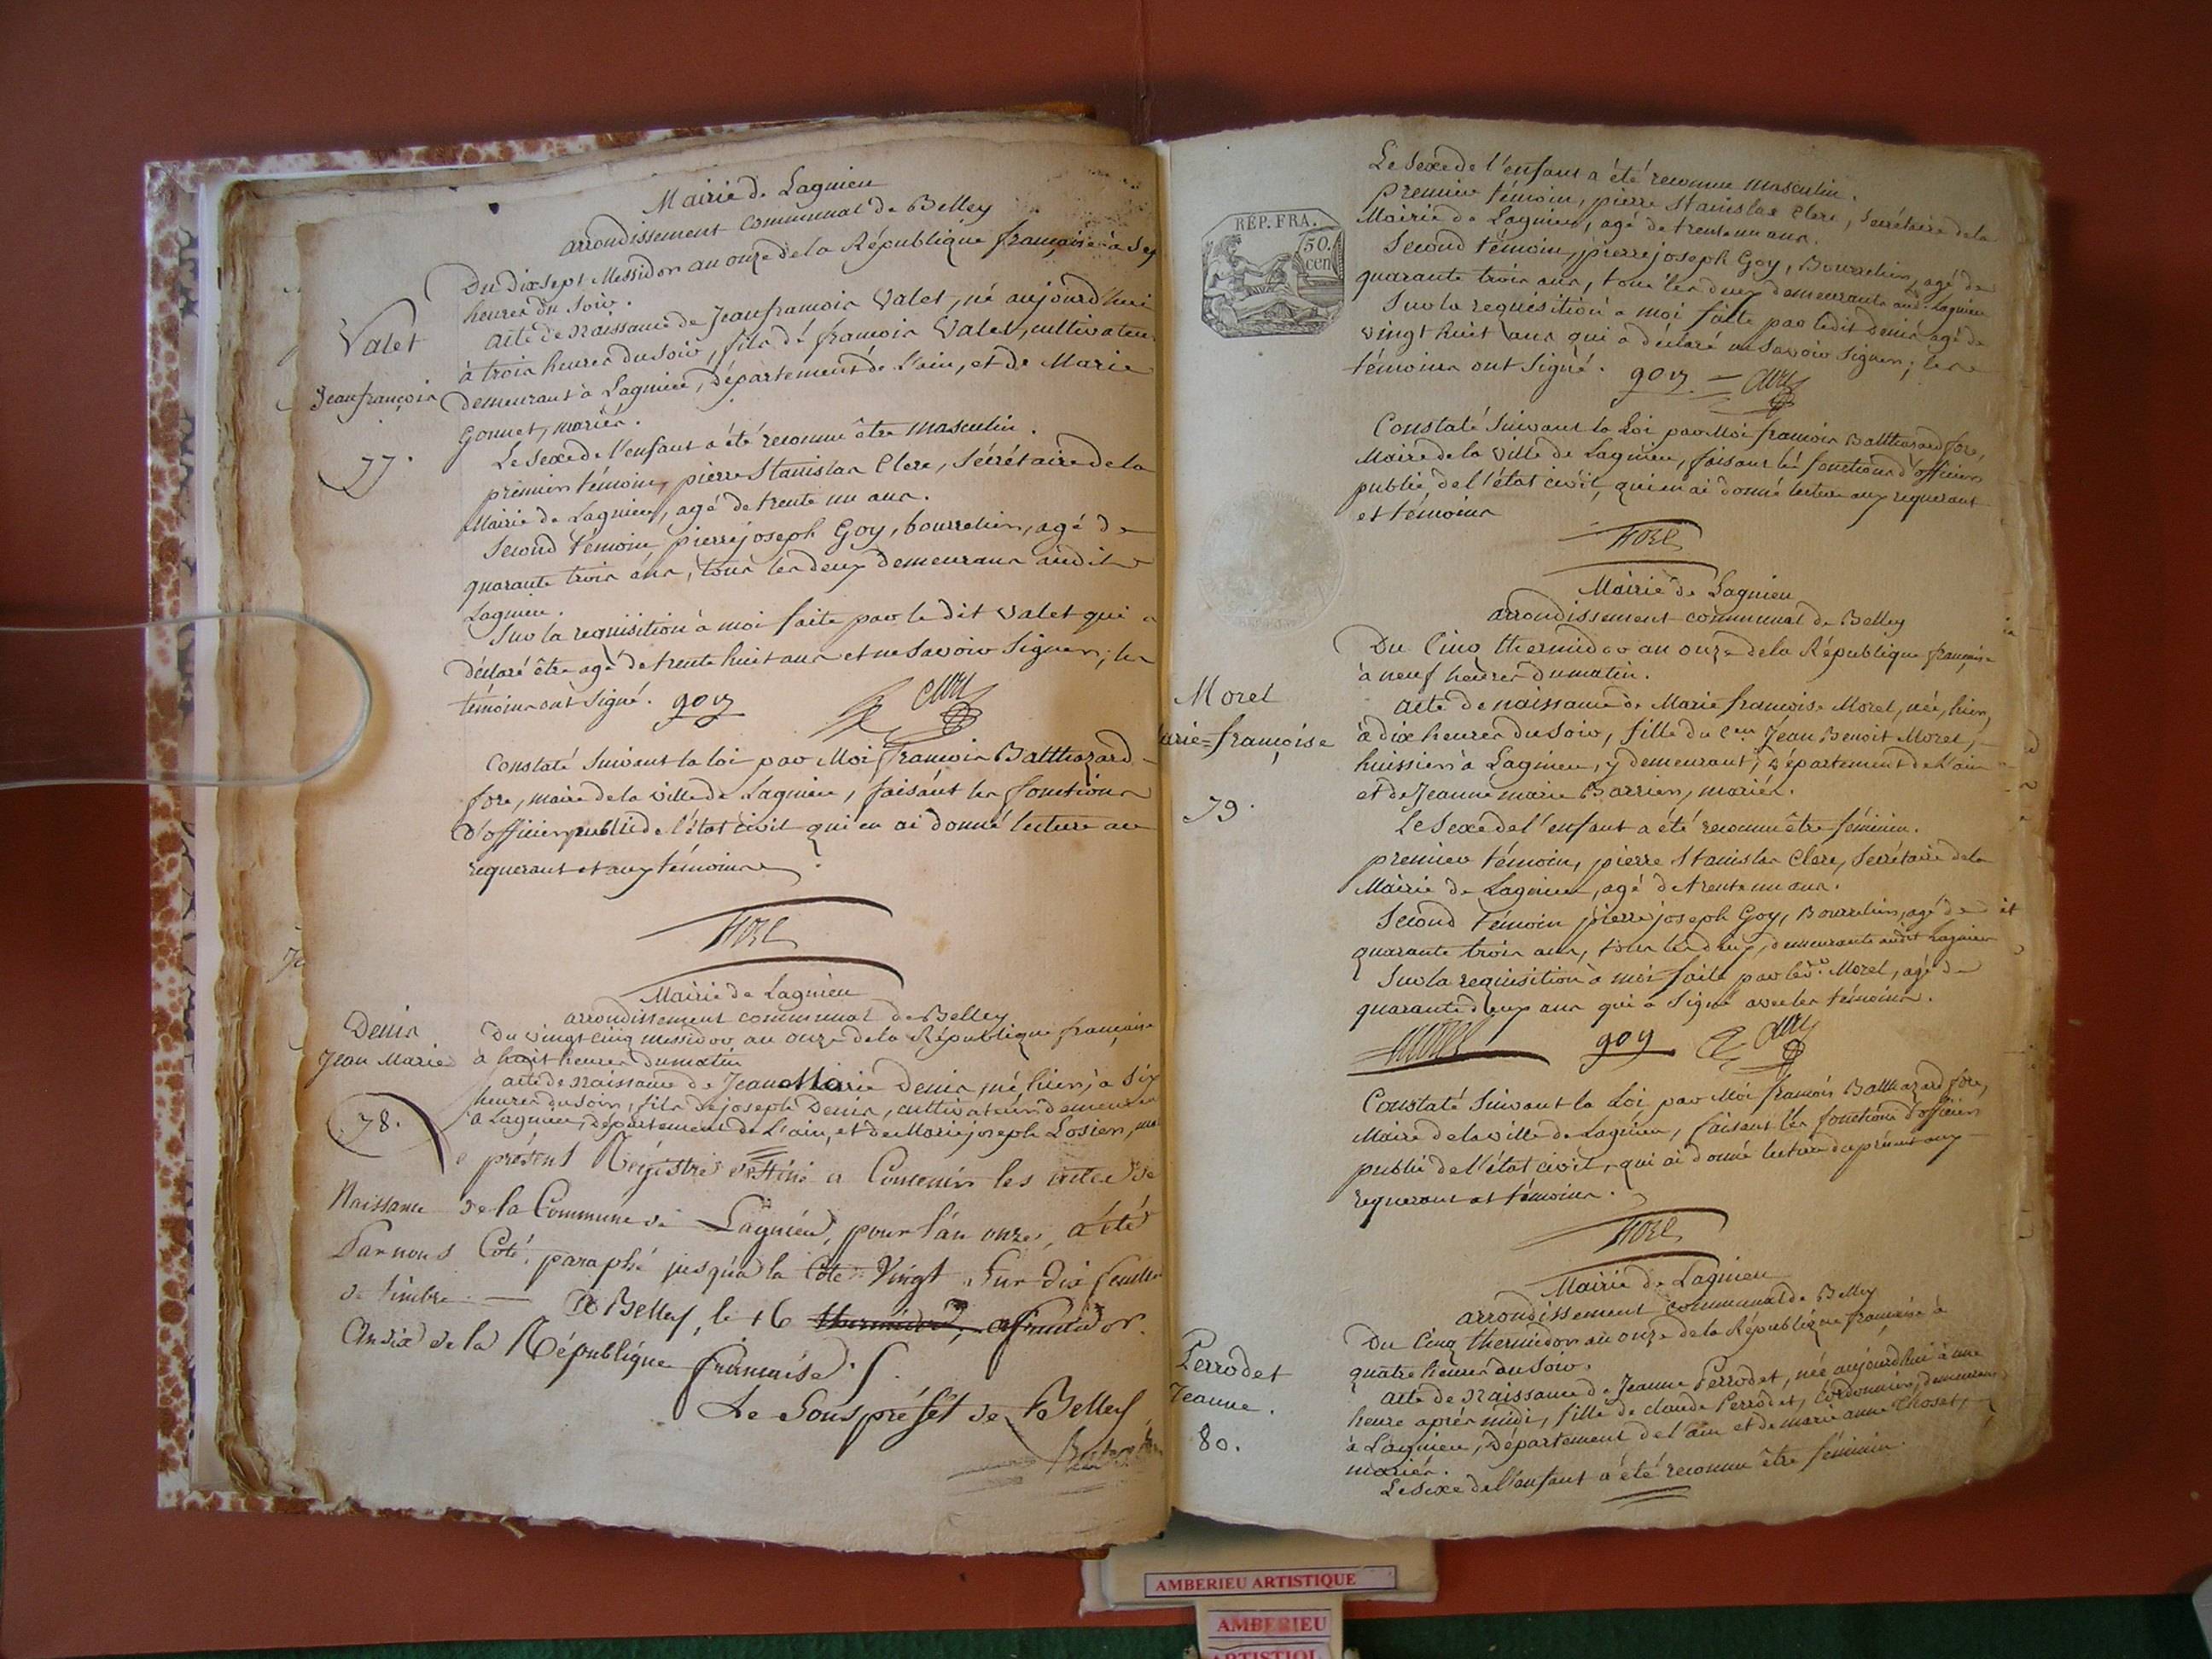 Mairie de Lagnieu
arrondissement communal de Belley
Du dix sept Messidor an onze de la République française à sep
heures du soir.
Valet
Jean françois
77.
acte de naissance de Jean francois Valet, né aujourd'hui
à trois heures du soir, fils de francois Valet, cultivateur
demeurant à Lagnieu, département de L'ain, et de Marie
Gonnet, mariés.
Le sexe de l'enfant a été reconnu être masculin.
premier témoin, pierre Stanislas Clerc, Sécrétaire de la
Mairie de Lagnieu, agé de trente un ans.
Second témoin, pierre joseph Goy, bourrelier, agé de
quarante trois ans, tous les deux demeurans audit
Lagnieu.
Sur la requisition à moi faite par le dit Valet qui a
déclaré être agé de trente huit ans et ne savoir signer, les
témoins ont signé. goy
Constaté suivant la loi par Moi francois Balthazard
fore, maire de la ville de Lagnieu, faisant les fonctions
d'officier public de l'état civil qui en ai donné lecture au
requerant et aux témoins
Mairie de Lagnieu
arrondissement communal de Belley
Denis
Jean Marie
78.
Du vingt cinq messidor an onze de la République française
à huit heures du matin
acte de naissance de Jean Marie Denis, né hier, à six
heures du soir, fils de joseph Denis, cultivateur demeurant
à Lagnieu, département de L'ain, et de Marie joseph Losier, ma
e présent Régistre destiné a Contenir les actes de
Naissance de la Commune de Lagnieu, pour l'an onze, a été
Par nous Coté, paraphé jusqu'a la Cote Vingt Sur dix feuilles
de timbre. — A Belley, le 16 thermidor, fructidor.
An dix de la République française.
Le Sous préfet de Belley
RÉP. FRA.
50.
cen
Le sexe de l'enfant a été reconnu masculin.
premier témoin, pierre Stanislas Clerc, Secrétaire de la
Mairie de Lagnieu, agé de trente un ans.
Second témoin, pierre joseph Goy, Bourrelier, agé de
quarante trois ans, tous les deux demeurants aud. Lagnieu
Sur la requisition a moi faite par ledit denis agé de
vingt huit ans qui a déclaré ne savoir signer; les
témoins ont signé. goy
Constaté suivant la Loi par Moi francois Balthazard fore,
Maire de la ville de Lagnieu, faisant les fonctions d'officier
public de l'état civil, qui en ai donné lecture aux requerant
et témoins
Mairie de Lagnieu
arrondissement communal de Belley
Du Cinq thermidor an onze de la République française
à neuf heures du matin.
Morel
arie-françoise
79.
acte de naissance de Marie francoise Morel, née, hier,
à dix heures du soir, fille du Cen Jean Benoit Morel,
huissier à Lagnieu, y demeurant, Département de L'ain
et de Jeanne marie Barrier, mariés.
Le sexe de l'enfant a été reconnu être féminin.
premier témoin, pierre Stanislas Clerc, Secrétaire de la
Mairie de Lagnieu, agé de trente un ans.
Second témoin pierre joseph Goy, Bourrelier, agé de
quarante trois ans, tous les deux, demeurants audit Lagnieu
Sur la requisition à moi faite par led. Morel, agé de
quarante deux ans qui a signé avec les témoins.
Morel goy
Constaté suivant la Loi par Moi francois Balthazard fore,
Maire de la ville de Lagnieu, faisant les fonctions d'officier
public de l'état civil, qui ai donné lecture du présent aux
requerant et témoins.
Mairie de Lagnieu
arrondissement communal de Belley
Du Cinq thermidor an onze de la République française à
quatre heures du soir.
Perrodet
Jeanne.
80.
acte de naissance de Jeanne Perrodet, née aujourd'hui à une
heure après midi, fille de claude Perrodet, Cordonnier, demeurant
à Lagnieu, Département de l'ain et de marie anne Choset,
mariés.
Le sexe de l'enfant a été reconnu être féminin.
AMBERIEU ARTISTIQUE
AMBERIEU